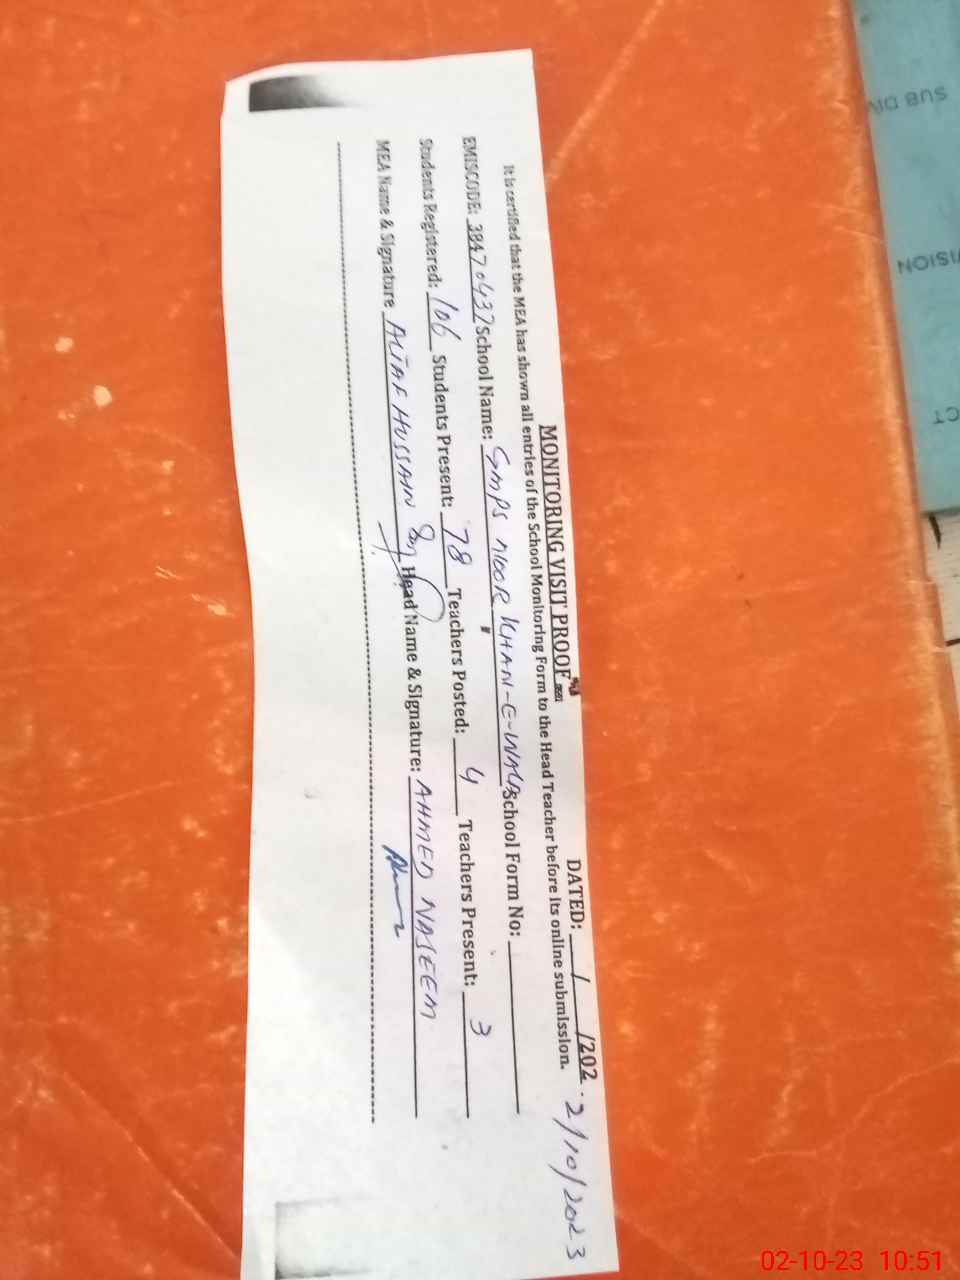 MONITORING VISIT PROOF
DATED: __/__/202 2/10/2023
It is certified that the MEA has shown all entries of the School Monitoring Form to the Head Teacher before its online submission.
EMISCODE: 38470432 School Name: GMPS NOOR KHAN-E-WALA School Form No:
Students Registered: 106 Students Present: 78 Teachers Posted: 4 Teachers Present: 3
MEA Name & Signature ALTAF HUSSAIN Head Name & Signature: AHMED NASEEM
SUB DIV
ISION
CT
02-10-23 10:51